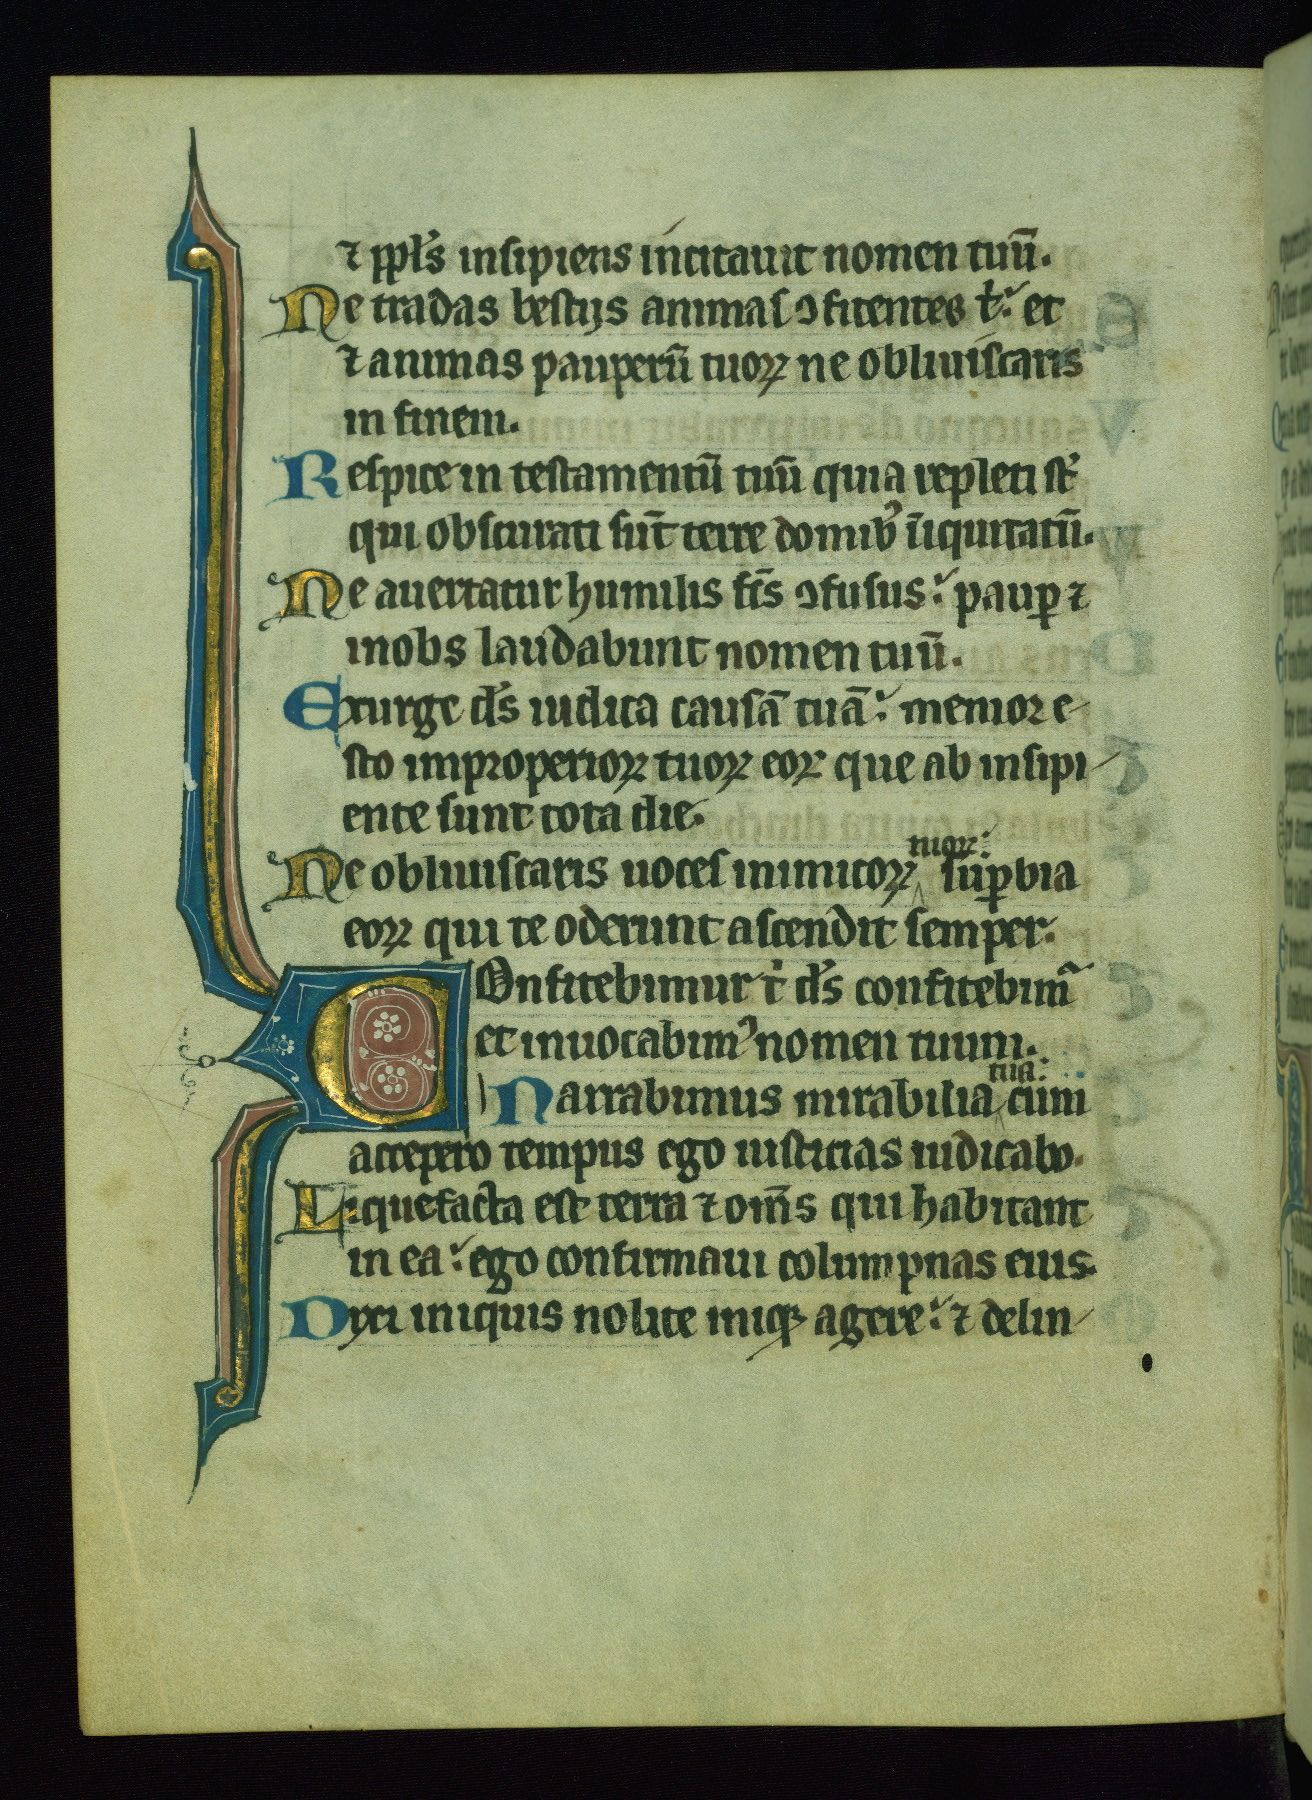 ⁊ pp̄ls insipiens incitauit nomen tuū.
Ne tradas bestijs animas ↄfitentes t̄: et
⁊ animas pauperū tuoꝝ ne obliuiscaris
in finem.
Respice in testamentū tuū quia repleti st̄
qui obscurati sūt terre domibꝰ īiquitatū.
Ne auertatur humilis fc̄s ↄfusus: paup̱ ⁊
inobs laudabunt nomen tuū.
Exurge ds̄ iudica causā tuā: memor e-
sto improperioꝝ tuoꝝ eoꝝ que ab insipi-
ente sunt tota die.
tuoꝝ:
Ne obliuiscaris uoces inimicoꝝ ‸ sup̱bia
eoꝝ qui te oderunt ascendit semper.
COnfitebimur t̄ ds̄ confitebim̄
et inuocabimꝰ nomen tuum.
tua:
Narrabimus mirabilia ‸ cum
accepero tempus ego iusticias iudicabo.
Liquefacta est terra ⁊ om̄s qui habitant
in ea: ego confirmaui columpnas eius.
Dyxi iniquis nolite iniqꝫ agere: ⁊ delin-